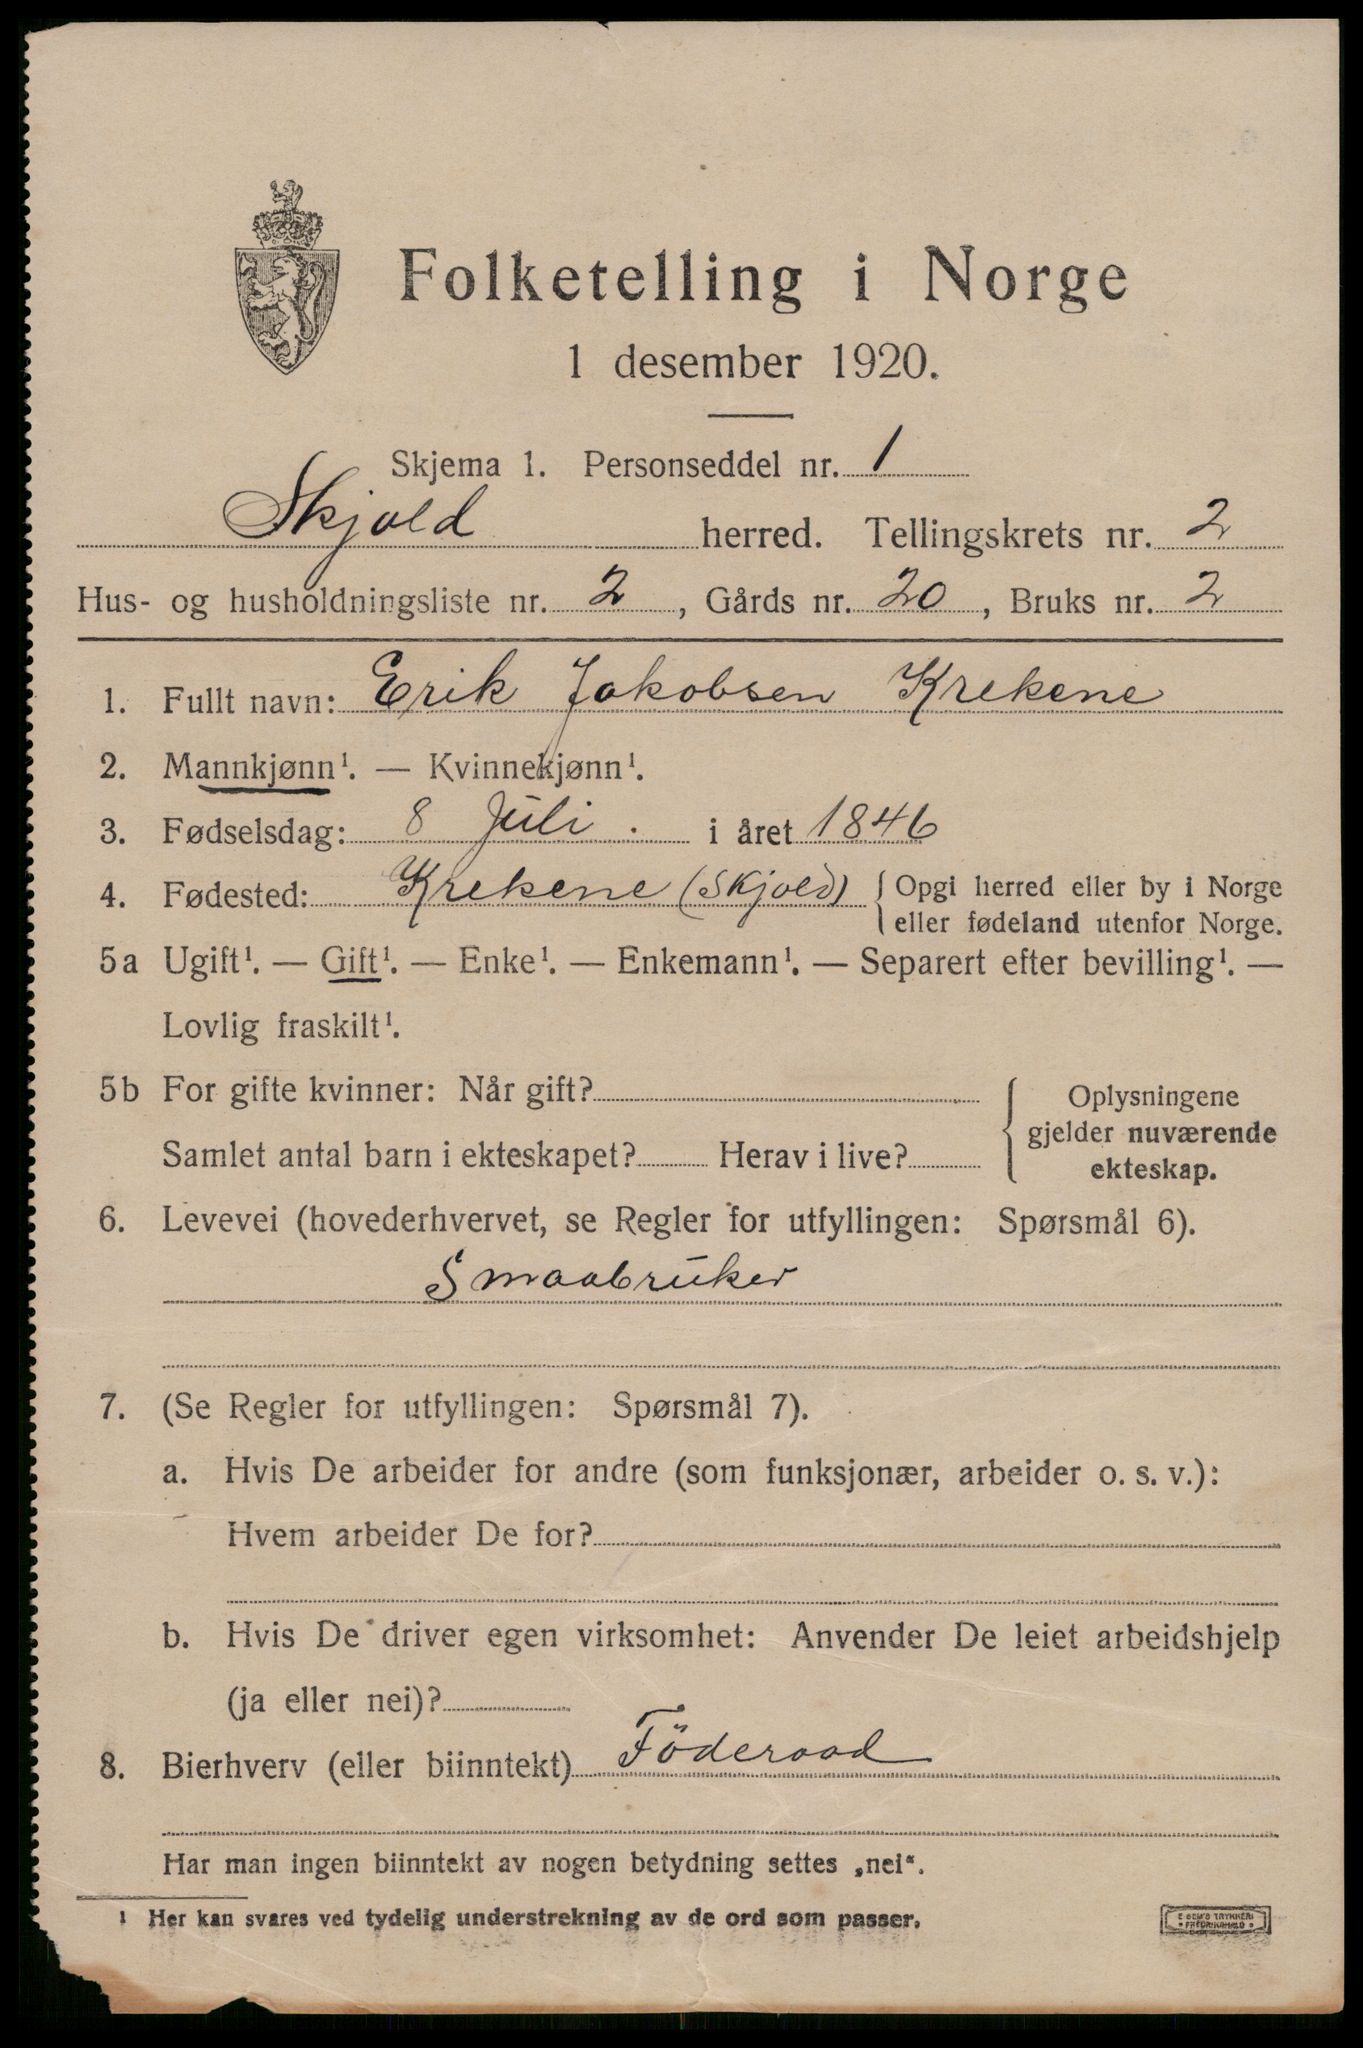 Folketelling i Norge
1 desember 1920.
Skjema 1. Personseddel nr. 1
Skjold herred. Tellingskrets nr. 2
Hus- og husholdningsliste nr. 2, Gårds nr. 20, Bruks nr. 2
1. Fullt navn: Erik Jakobsen Krekene
2. Mannkjønn¹. — Kvinnekjønn¹.
3. Fødselsdag: 8 Juli. i året 1846
4. Fødested: Krekene (Skjold) { Opgi herred eller by i Norge
eller fødeland utenfor Norge.
5a Ugift¹. — Gift¹. — Enke¹. — Enkemann¹. — Separert efter bevilling¹. —
Lovlig fraskilt¹.
5b For gifte kvinner: Når gift?
Samlet antal barn i ekteskapet? Herav i live?
Oplysningene
gjelder nuværende
ekteskap.
6. Levevei (hovederhvervet, se Regler for utfyllingen: Spørsmål 6).
Smaabruker
7. (Se Regler for utfyllingen: Spørsmål 7).
a. Hvis De arbeider for andre (som funksjonær, arbeider o. s. v.):
Hvem arbeider De for?
b. Hvis De driver egen virksomhet: Anvender De leiet arbeidshjelp
(ja eller nei)?
8. Bierhverv (eller biinntekt) Föderaad
Har man ingen biinntekt av nogen betydning settes „nei“.
1 Her kan svares ved tydelig understrekning av de ord som passer.